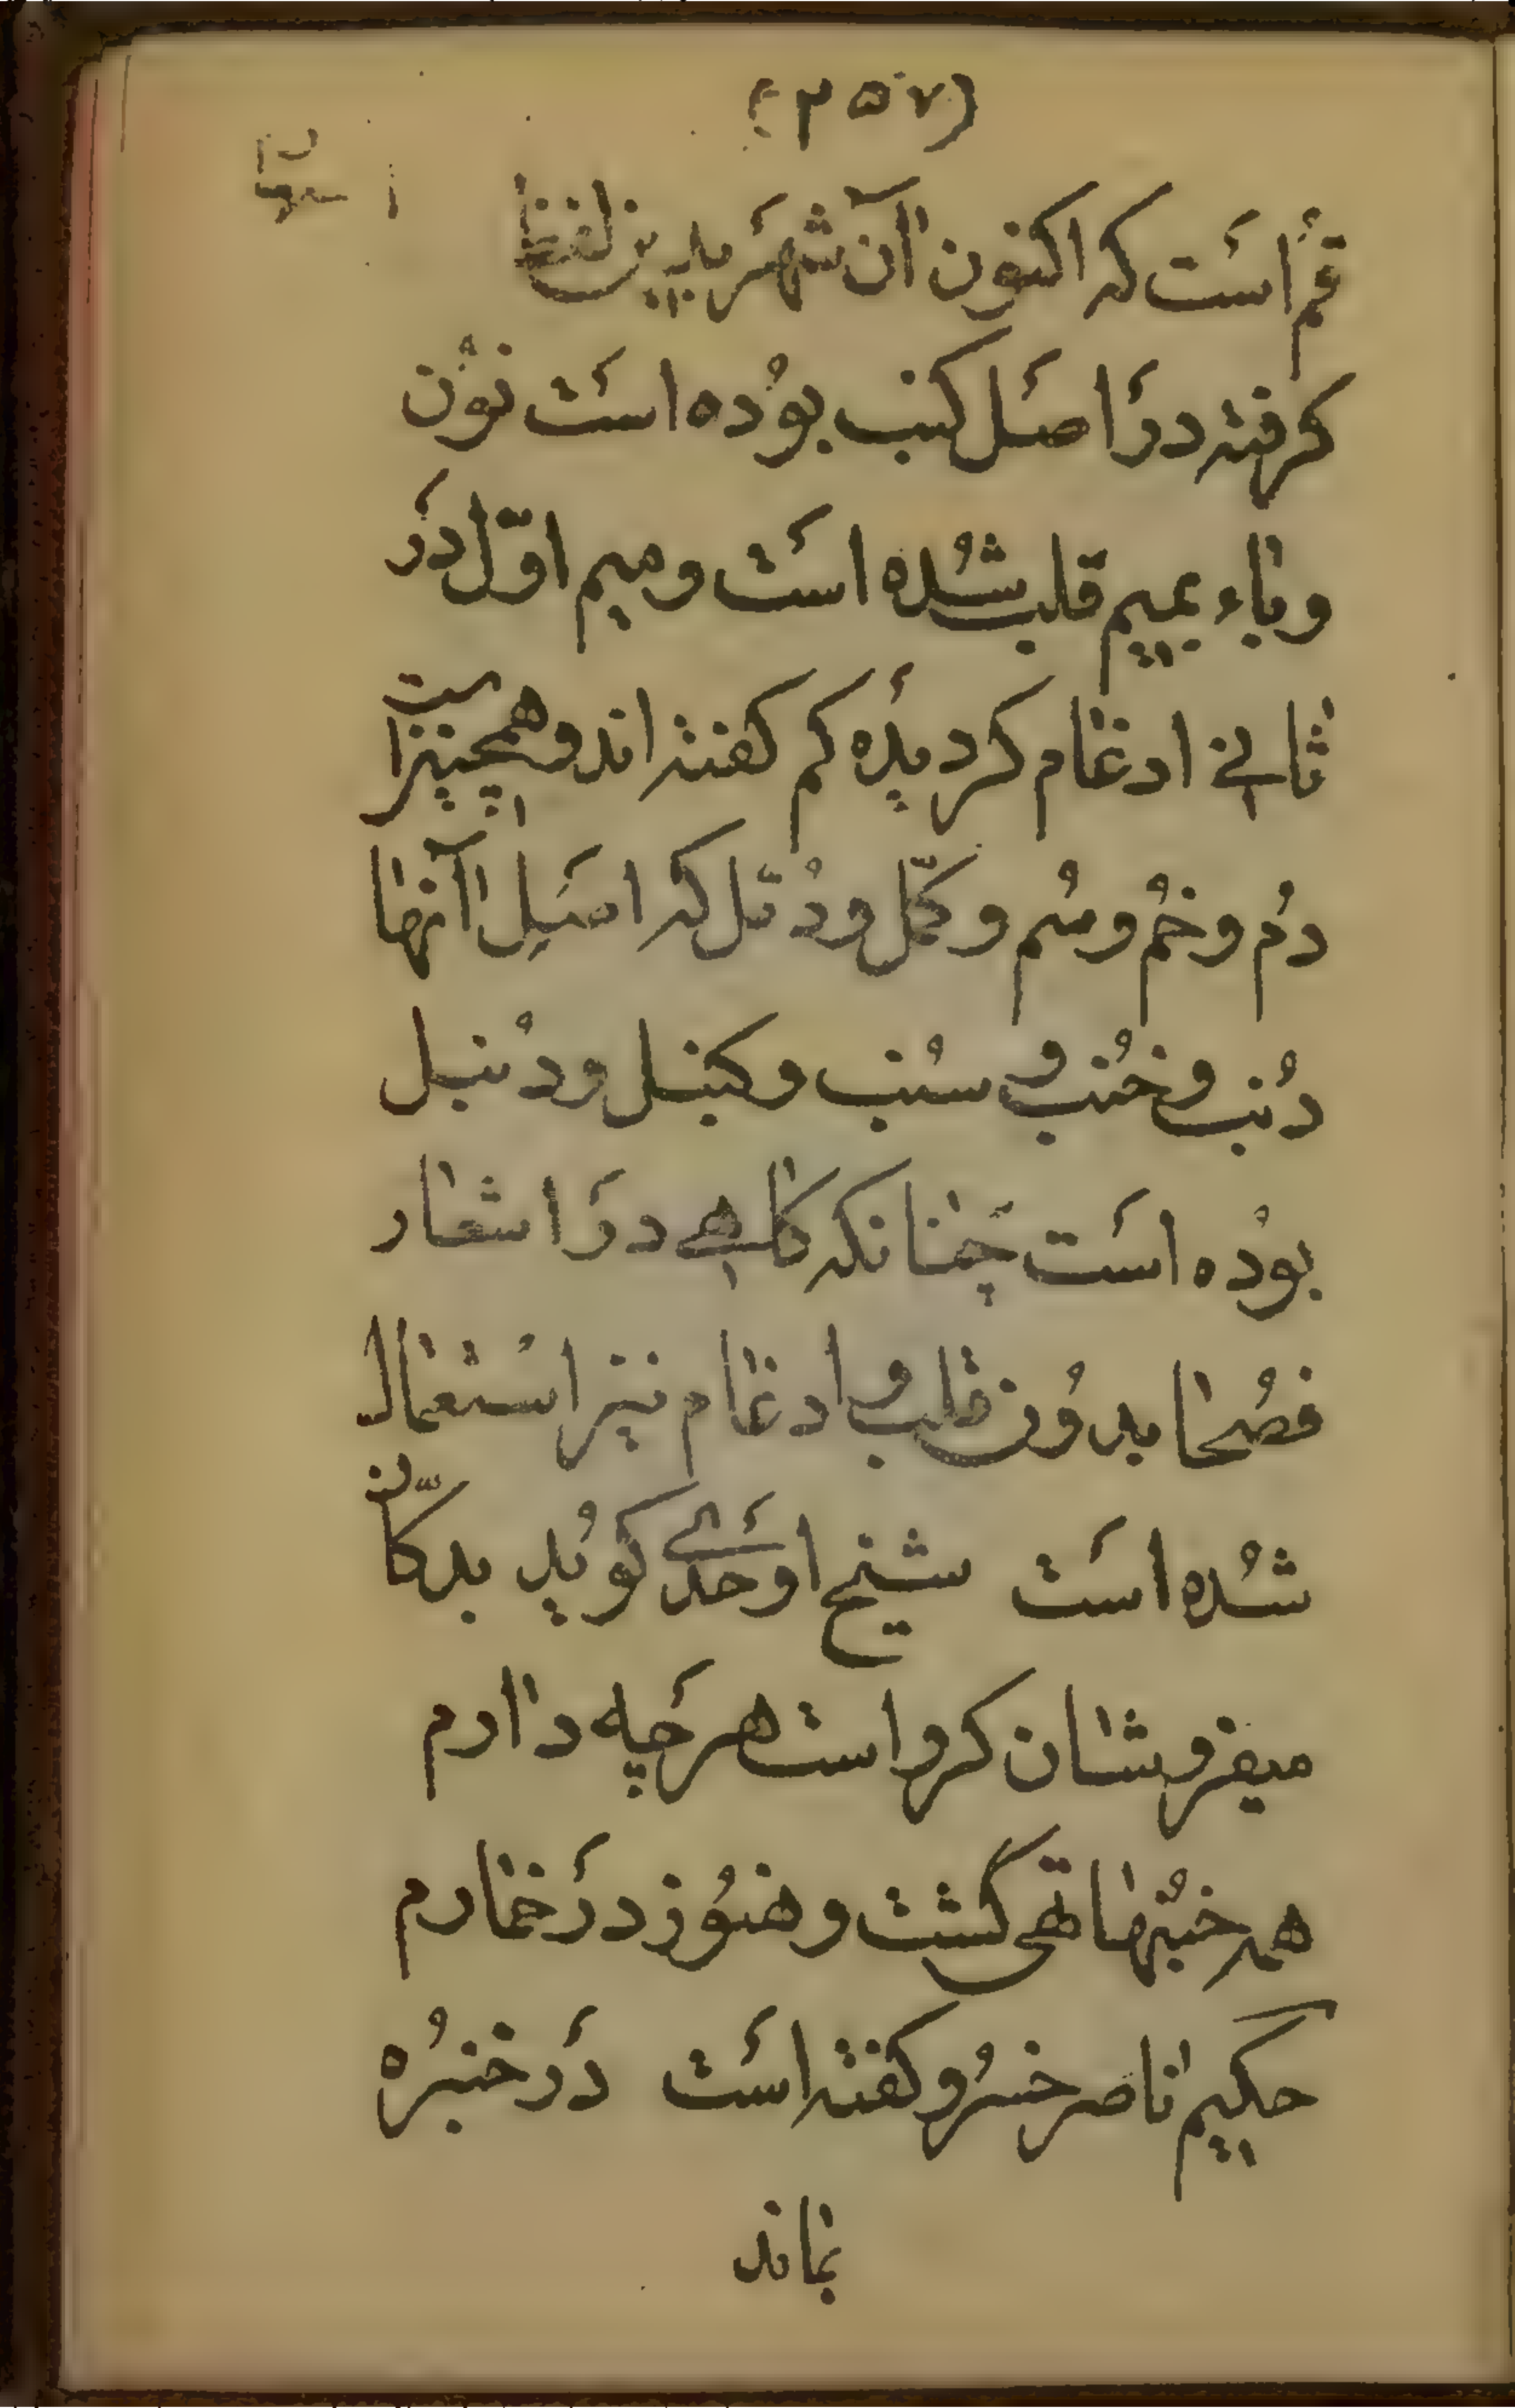 (۳۵۷)
قُم است که اکنون آن شهر بدین لفظ
کرفته در اصل کنب بوُده است نوُن
و باء بمیم قلب شُده است و میم اوّل در
ثانی ادغام کردیده کم کفته اند و همچنین است
دُم و خُم و سُم و کمّل و دُمّل که اصل آنها
دُنب و خُنب و سُنب و کنبل و دُنبل
بوُده است چنانکه کاهی در اشعار
فصُحا بدوُن قلب و ادغام نیز اسُتعمال
شُده است شیخ اوحدی کوُید بدکّان
میفروشان کرو است هرچه دارم
همه خنُبها تهی گشت و هنوُز در خمارم
حکیم ناصر خسرُو کفته است در خنبُره
بماند